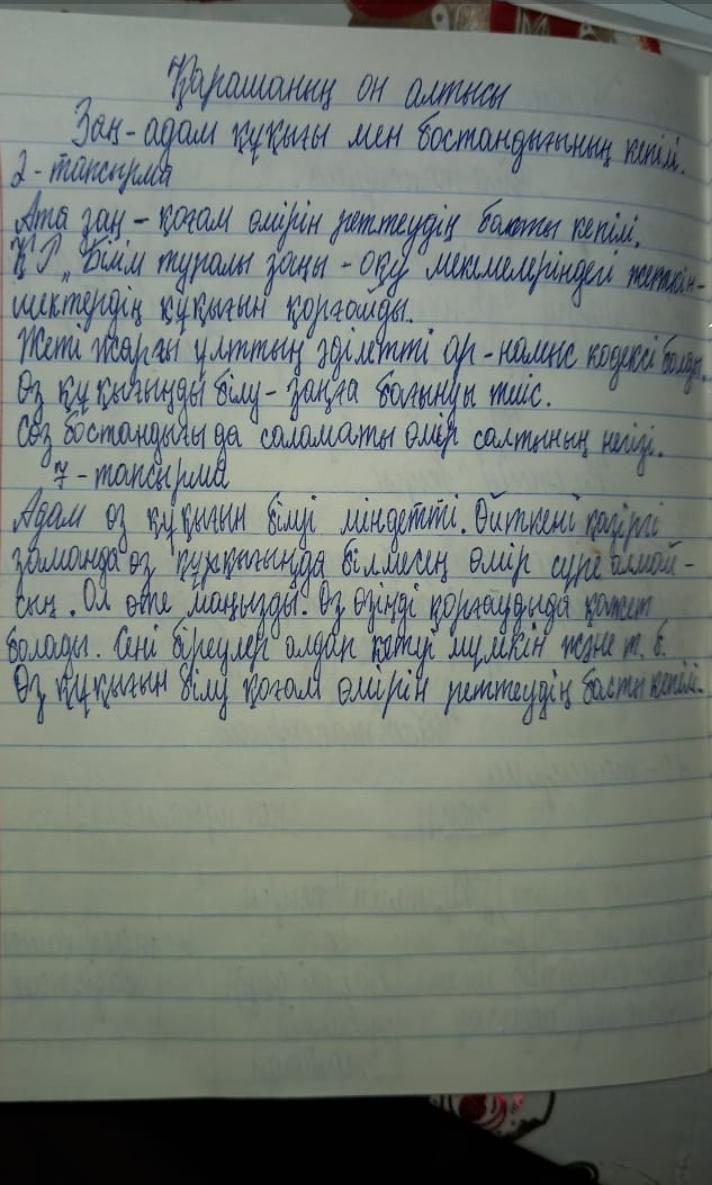 Қарашаның он алтысы
Заң - адам құқығы мен бостандығының кепілі.
2 - тапсырма
Ата заң - қоғам өмірін реттеудің басты кепілі.
ҚР „Білім туралы заңы - оқу мекмелеріндегі жеткін-
шектердің құқығын қорғайды.
Жеті жарғы ұлттың әділетті ар - намыс кодексі болды.
Өз құқығыңды білу - заңға бағынуы тиіс.
Сөз бостандығы да саламаты өмір салтының негізі.
7 - тапсырма
Адам өз құқығын білуі міндетті. Өйткені қазіргі
заманда өз құқығыңда білмесең өмір сүре алмай -
сың. Ол өте маңызды. Өз өзіңді қорғаудыда қажет
болады. Сені біреулер алдап кетуі мүмкін және т. б.
Өз құқығын білу қоғам өмірін реттеудің басты кепілі.